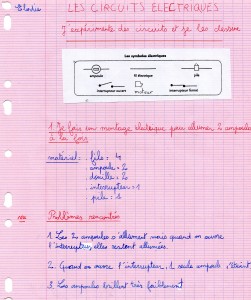 Elodie
LES CIRCUITS ELECTRIQUES
J'expérimente des circuits et je les dessine
Les symboles électriques
ampoule
fil électrique
pile
interrupteur ouvert
moteur
interrupteur fermé
1. Je fais un montage électrique pour allumer 2 ampoules
à la fois
matériel : fils = 4
ampoule = 2
douille = 2
interrupteur = 1
pile = 1
Problèmes rencontrés
1. Les 2 ampoules s'allument mais quand on ouvre
l'interrupteur, elles restent allumées.
2. Quand on ouvre l'interrupteur, 1 seule ampoule s'éteint
3. Les ampoules brillent très faiblement